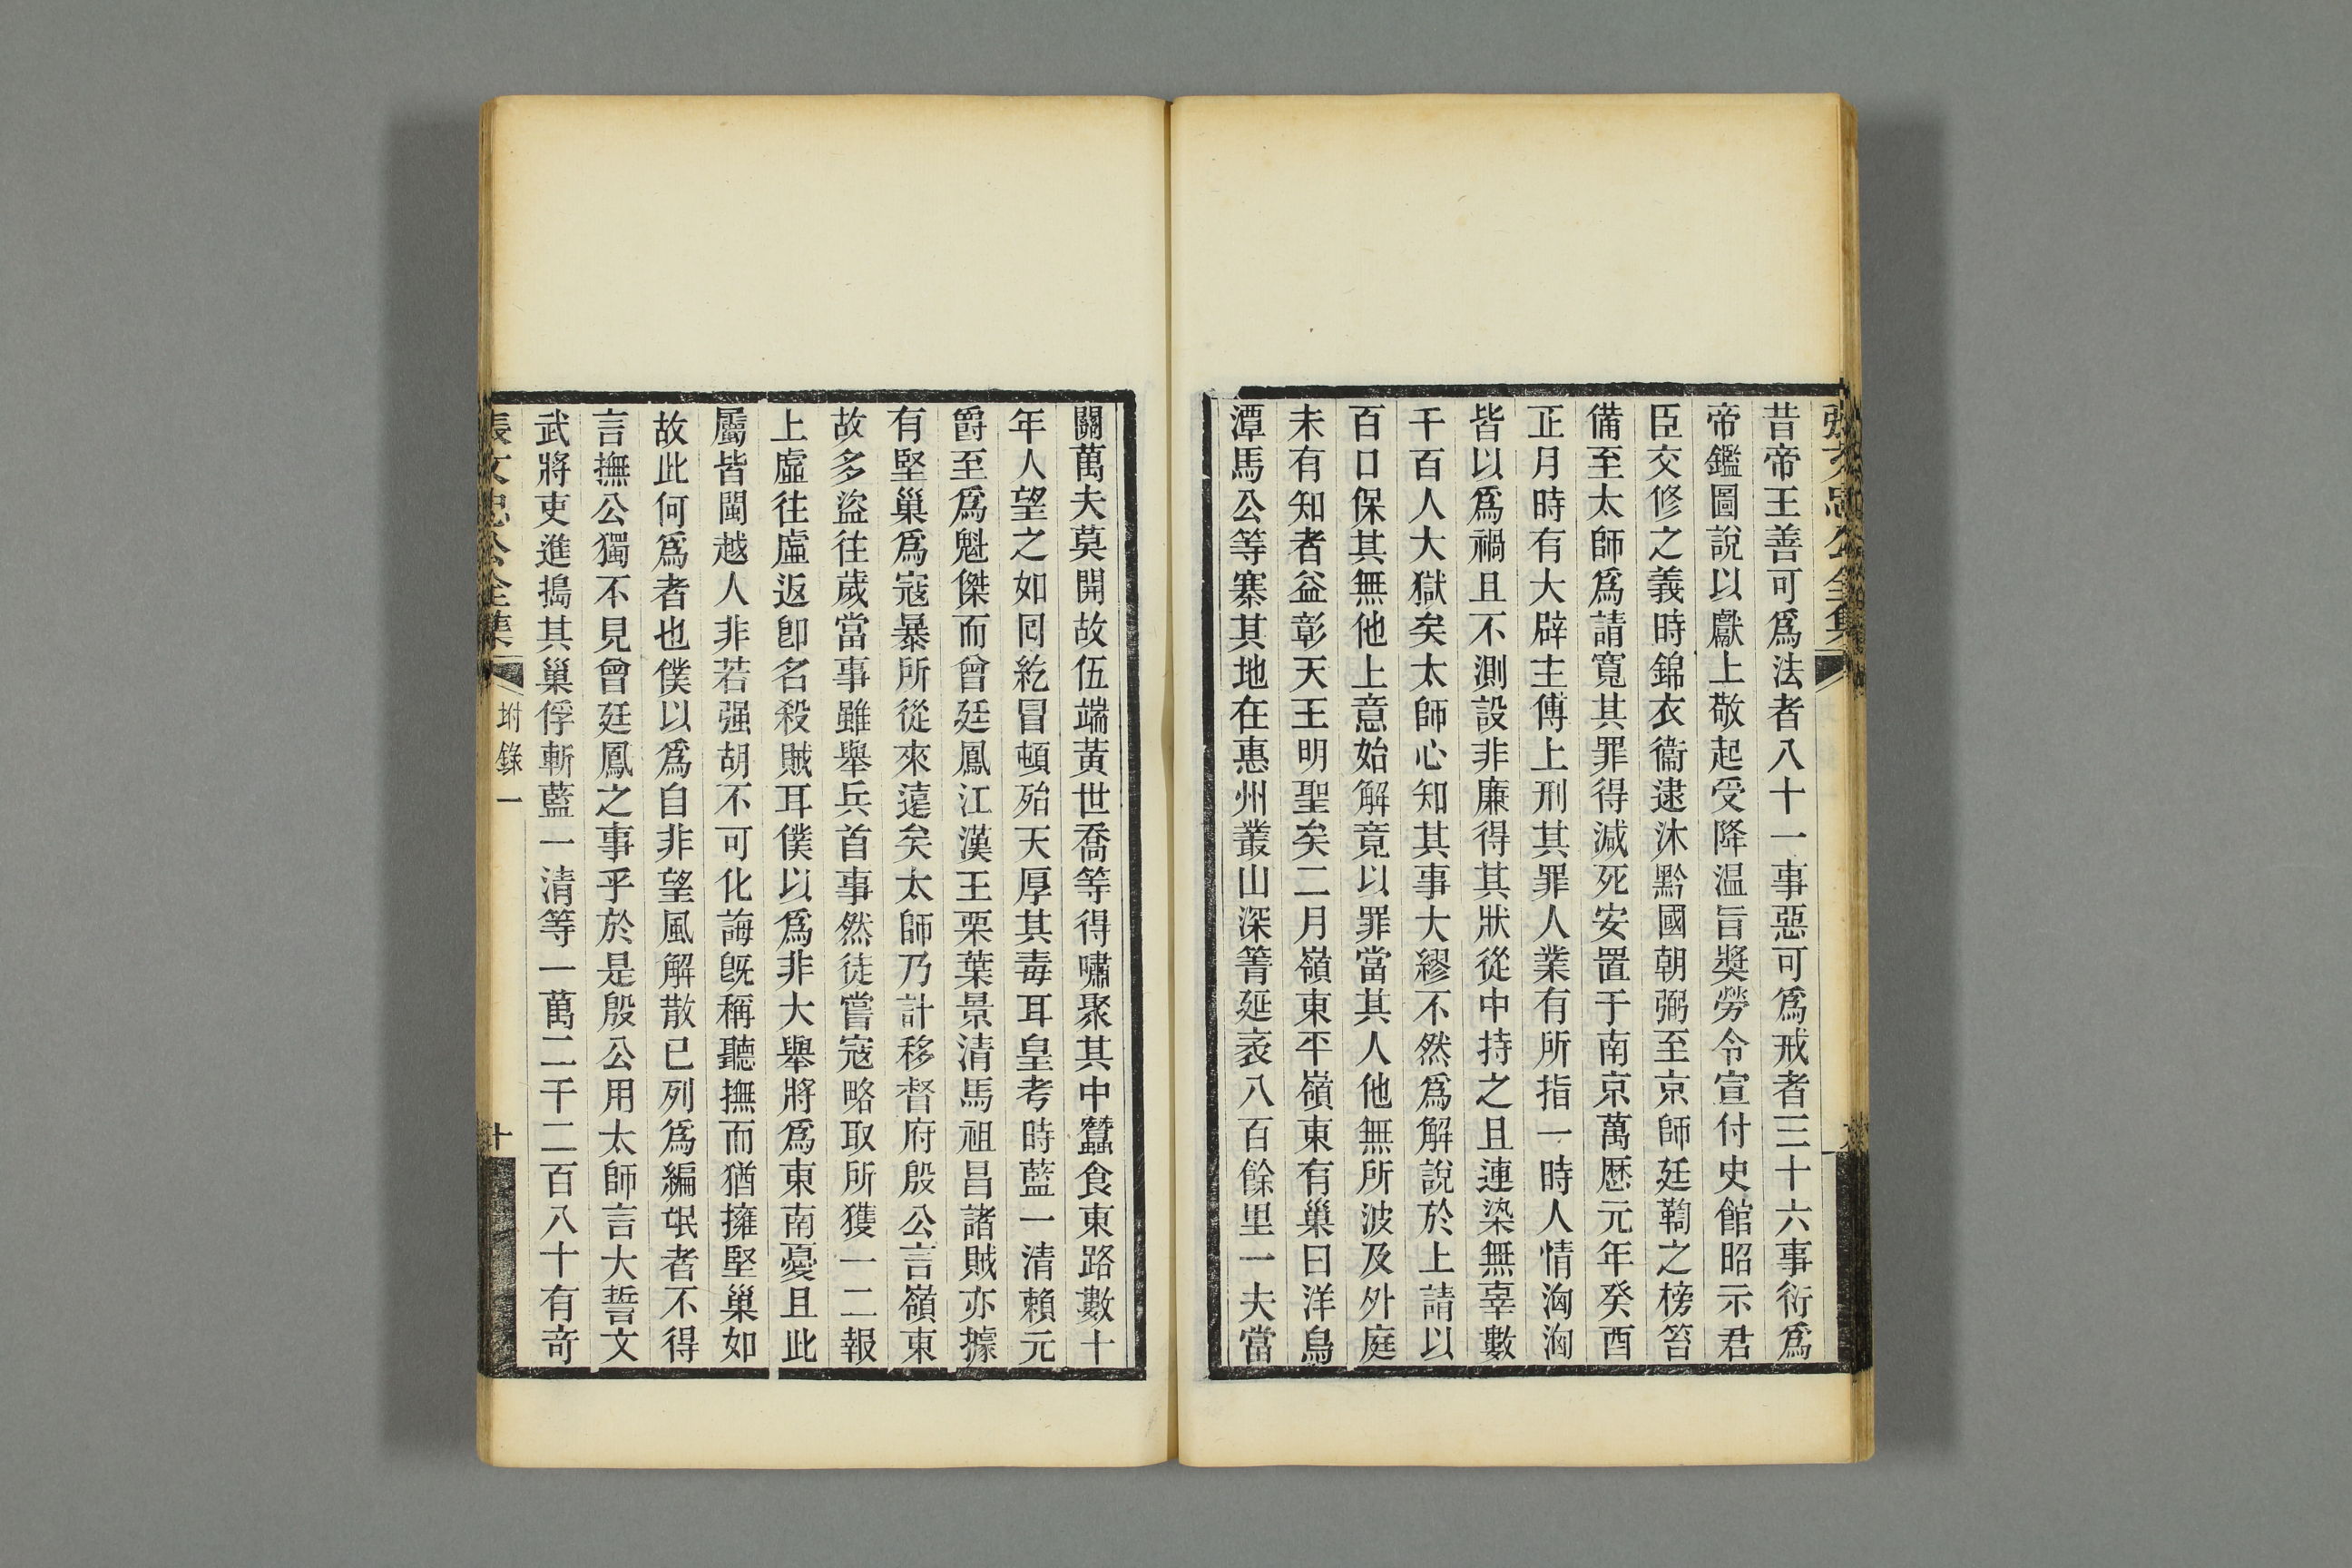 張文忠公全集
昔帝王善可爲法者八十一事惡可爲戒者三十六事衍爲
帝鑑圖說以獻上敬起受降温旨奬勞令宣付史館昭示君
臣交修之義時錦衣衞逮沐黔國朝弼至京師廷鞫之榜笞
備至太師爲請寬其罪得減死安置于南京萬歷元年癸酉
正月時有大辟主傅上刑其罪人業有所指一時人情洶洶
皆以爲禍且不測設非廉得其狀從中持之且連染無辜數
千百人大獄矣太師心知其事大繆不然爲解說於上請以
百口保其無他上意始解竟以罪當其人他無所波及外庭
未有知者益彰天王明聖矣二月嶺東平嶺東有巢曰洋烏
潭馬公等寨其地在惠州叢山深箐延袤八百餘里一夫當
關萬夫莫開故伍端黃世喬等得嘯聚其中蠶食東路數十
年人望之如囘紇冒頓殆天厚其毒耳皇考時藍一清賴元
爵至爲魁傑而曾廷鳳江漢王栗葉景清馬祖昌諸賊亦據
有堅巢爲寇暴所從來遠矣太師乃計移督府殷公言嶺東
故多盜往歲當事雖舉兵首事然徒嘗寇略取所獲一二報
上虛往虛返卽名殺賊耳僕以爲非大舉將爲東南憂且此
屬皆閩越人非若强胡不可化誨旣稱聽撫而猶擁堅巢如
故此何爲者也僕以爲自非望風解散已列爲編氓者不得
言撫公獨不見曾廷鳳之事乎於是殷公用太師言大誓文
武將吏進搗其巢俘斬藍一清等一萬二千二百八十有竒
張文忠公全集
坿錄一
十